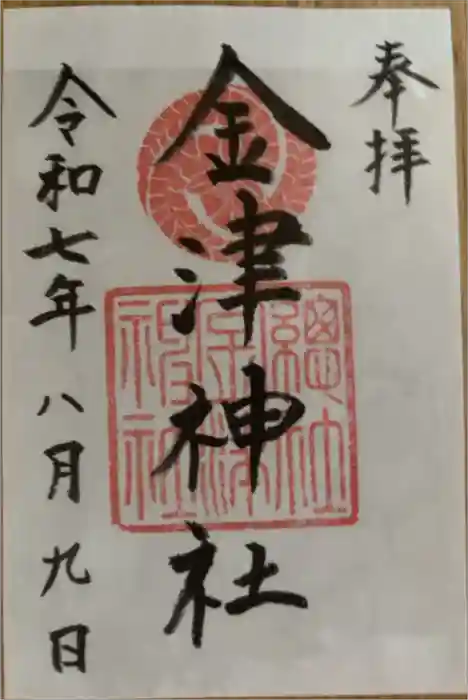 奉拝
金津神社
令和七年 八月 九日